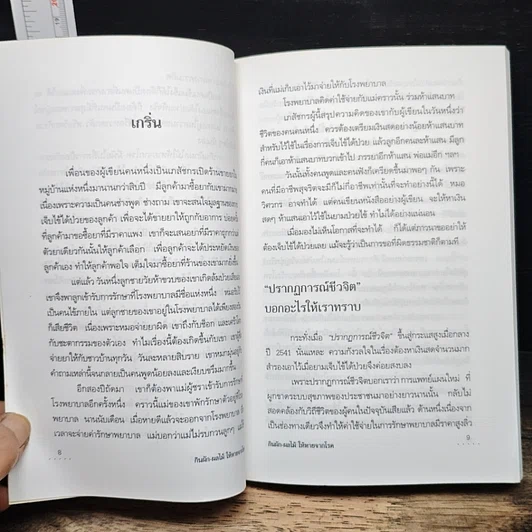 เกริ่น
เพื่อนของผู้เขียนคนหนึ่งเป็นเภสัชกรเปิดร้านขายยาใน
หมู่บ้านแห่งหนึ่งมานานกว่าสิบปี มีลูกค้ามาซื้อยากับเขามาก
เนื่องเพราะความเป็นคนช่างพูด ช่างถาม เขาจะสนใจมูลฐานของ
เจ็บไข้ได้ป่วยของลูกค้า เพื่อจะได้ขายยาให้ถูกกับอาการ บ่อยครั้ง
ที่ลูกค้ามาขอซื้อยาที่มีราคาแพง เขาก็จะเสนอยาที่มีราคาถูกกว่า
ตัวยาเดียวกันนั้นให้ลูกค้าเลือก เพื่อลูกค้าจะได้ประหยัดเงิน
ลูกค้าเอง ทำให้ลูกค้าพอใจ เต็มใจมาซื้อยาที่ร้านของเขามากยิ่งขึ้น
แต่แล้ว วันหนึ่งลูกชายวัยห้าขวบของเขาเกิดล้มป่วย
เขาจึงพาลูกเข้ารับการรักษาที่โรงพยาบาลมีชื่อแห่งหนึ่ง
เป็นคนไข้ภายใน แต่ลูกชายของเขาอยู่ในโรงพยาบาลได้เพียง
ก็เสียชีวิต เนื่องเพราะหมอจ่ายยาผิด เขาถึงกับช็อก
กับชะตากรรมของตัวเอง ทำไมเรื่องนี้ต้องเกิดขึ้นกับเขา
จ่ายยาให้กับชาวบ้านทุกวัน วันละหลายสิบราย เขาหมกมุ่นอยู่กับ
คำถามเหล่านี้จนกลายเป็นคนพูดน้อยลงและเงียบขรึมมากขึ้น
อีกสองปีถัดมา เขาก็ต้องพาแม่ผู้ชราเข้ารับการรักษา
โรงพยาบาลอีกครั้งหนึ่ง คราวนี้แม่ของเขาพักรักษาตัวอยู่
พยาบาล นานนับเดือน เมื่อหายดีแล้วจะออกจากโรงพยาบาล
เวลาจะจ่ายค่ารักษาพยาบาล แม่บอกว่าแม่ไม่รบกวนลูกๆ
8
กินผัก-ผลไม้ ให้หายจากโรค
เงินที่แม่เก็บเอาไว้มาจ่ายให้กับโรงพยาบาล
โรงพยาบาลคิดค่าใช้จ่ายกับแม่คราวนั้น ร่วมห้าแสนบาท
เภสัชกรผู้นี้สรุปความคิดของเขากับผู้เขียนในวันหนึ่งว่า
ชีวิตของคนคนหนึ่ง ควรต้องเตรียมเงินสดอย่างน้อยห้าแสนบาท
สำหรับไว้ใช้ในเรื่องการเจ็บไข้ได้ป่วย แล้วลูกอีกคนละห้าแสน มีลูก
กี่คนก็เอาห้าแสนบาทบวกเข้าไป ภรรยาอีกห้าแสน พ่อแม่อีก ฯลฯ
วันนั้นทั้งคนพูดและคนฟังก็เครียดขึ้นมาพอๆ กัน เพราะ
คนที่มีอาชีพสุจริตจะมีก็ไม่กี่อาชีพเท่านั้นที่จะทำอย่างนี้ได้ หมอ
วิศวกร อาจทำได้ แต่คนเขียนหนังสืออย่างผู้เขียน จะให้หาเงิน
สดๆ ห้าแสนเอาไว้ใช้ในยามป่วยไข้ ทำไม่ได้อย่างแน่นอน
เมื่อมองไม่เห็นโอกาสที่จะทำได้ ก็ได้แต่ภาวนาขออย่าให้
เจ็บไข้ได้ป่วยเลย แม้จะรู้ว่าเป็นการขอที่ผิดธรรมชาติก็ตามที่
“ปรากฏการณ์ชีวจิต”
บอกอะไรให้เราทราบ
กระทั่งเมื่อ “ปรากฏการณ์ชีวจิต” ขึ้นสู่กระแสสูงเมื่อกลาง
ปี 2541 นั่นแหละ ความกังวลใจในเรื่องต้องหาเงินสดจำนวนมาก
สำรองเอาไว้เมื่อยามเจ็บไข้ได้ป่วยจึงค่อยสงบลง
เพราะปรากฏการณ์ชีวจิตบอกเราว่า การแพทย์แผนใหม่ ที่
ผูกขาดระบบสุขภาพของประชาชนมาอย่างยาวนานนั้น กลับไม่
สอดคล้องกับวิถีชีวิตของผู้คนในปัจจุบันเสียแล้ว ด้านหนึ่งเนื่องจาก
เป็นช่องทางเดียวจึงทำให้ค่าใช้จ่ายในการรักษาพยาบาลมีราคาสูงลิ่ว
9
กินผัก-ผลไม้ ให้หายจากโรค